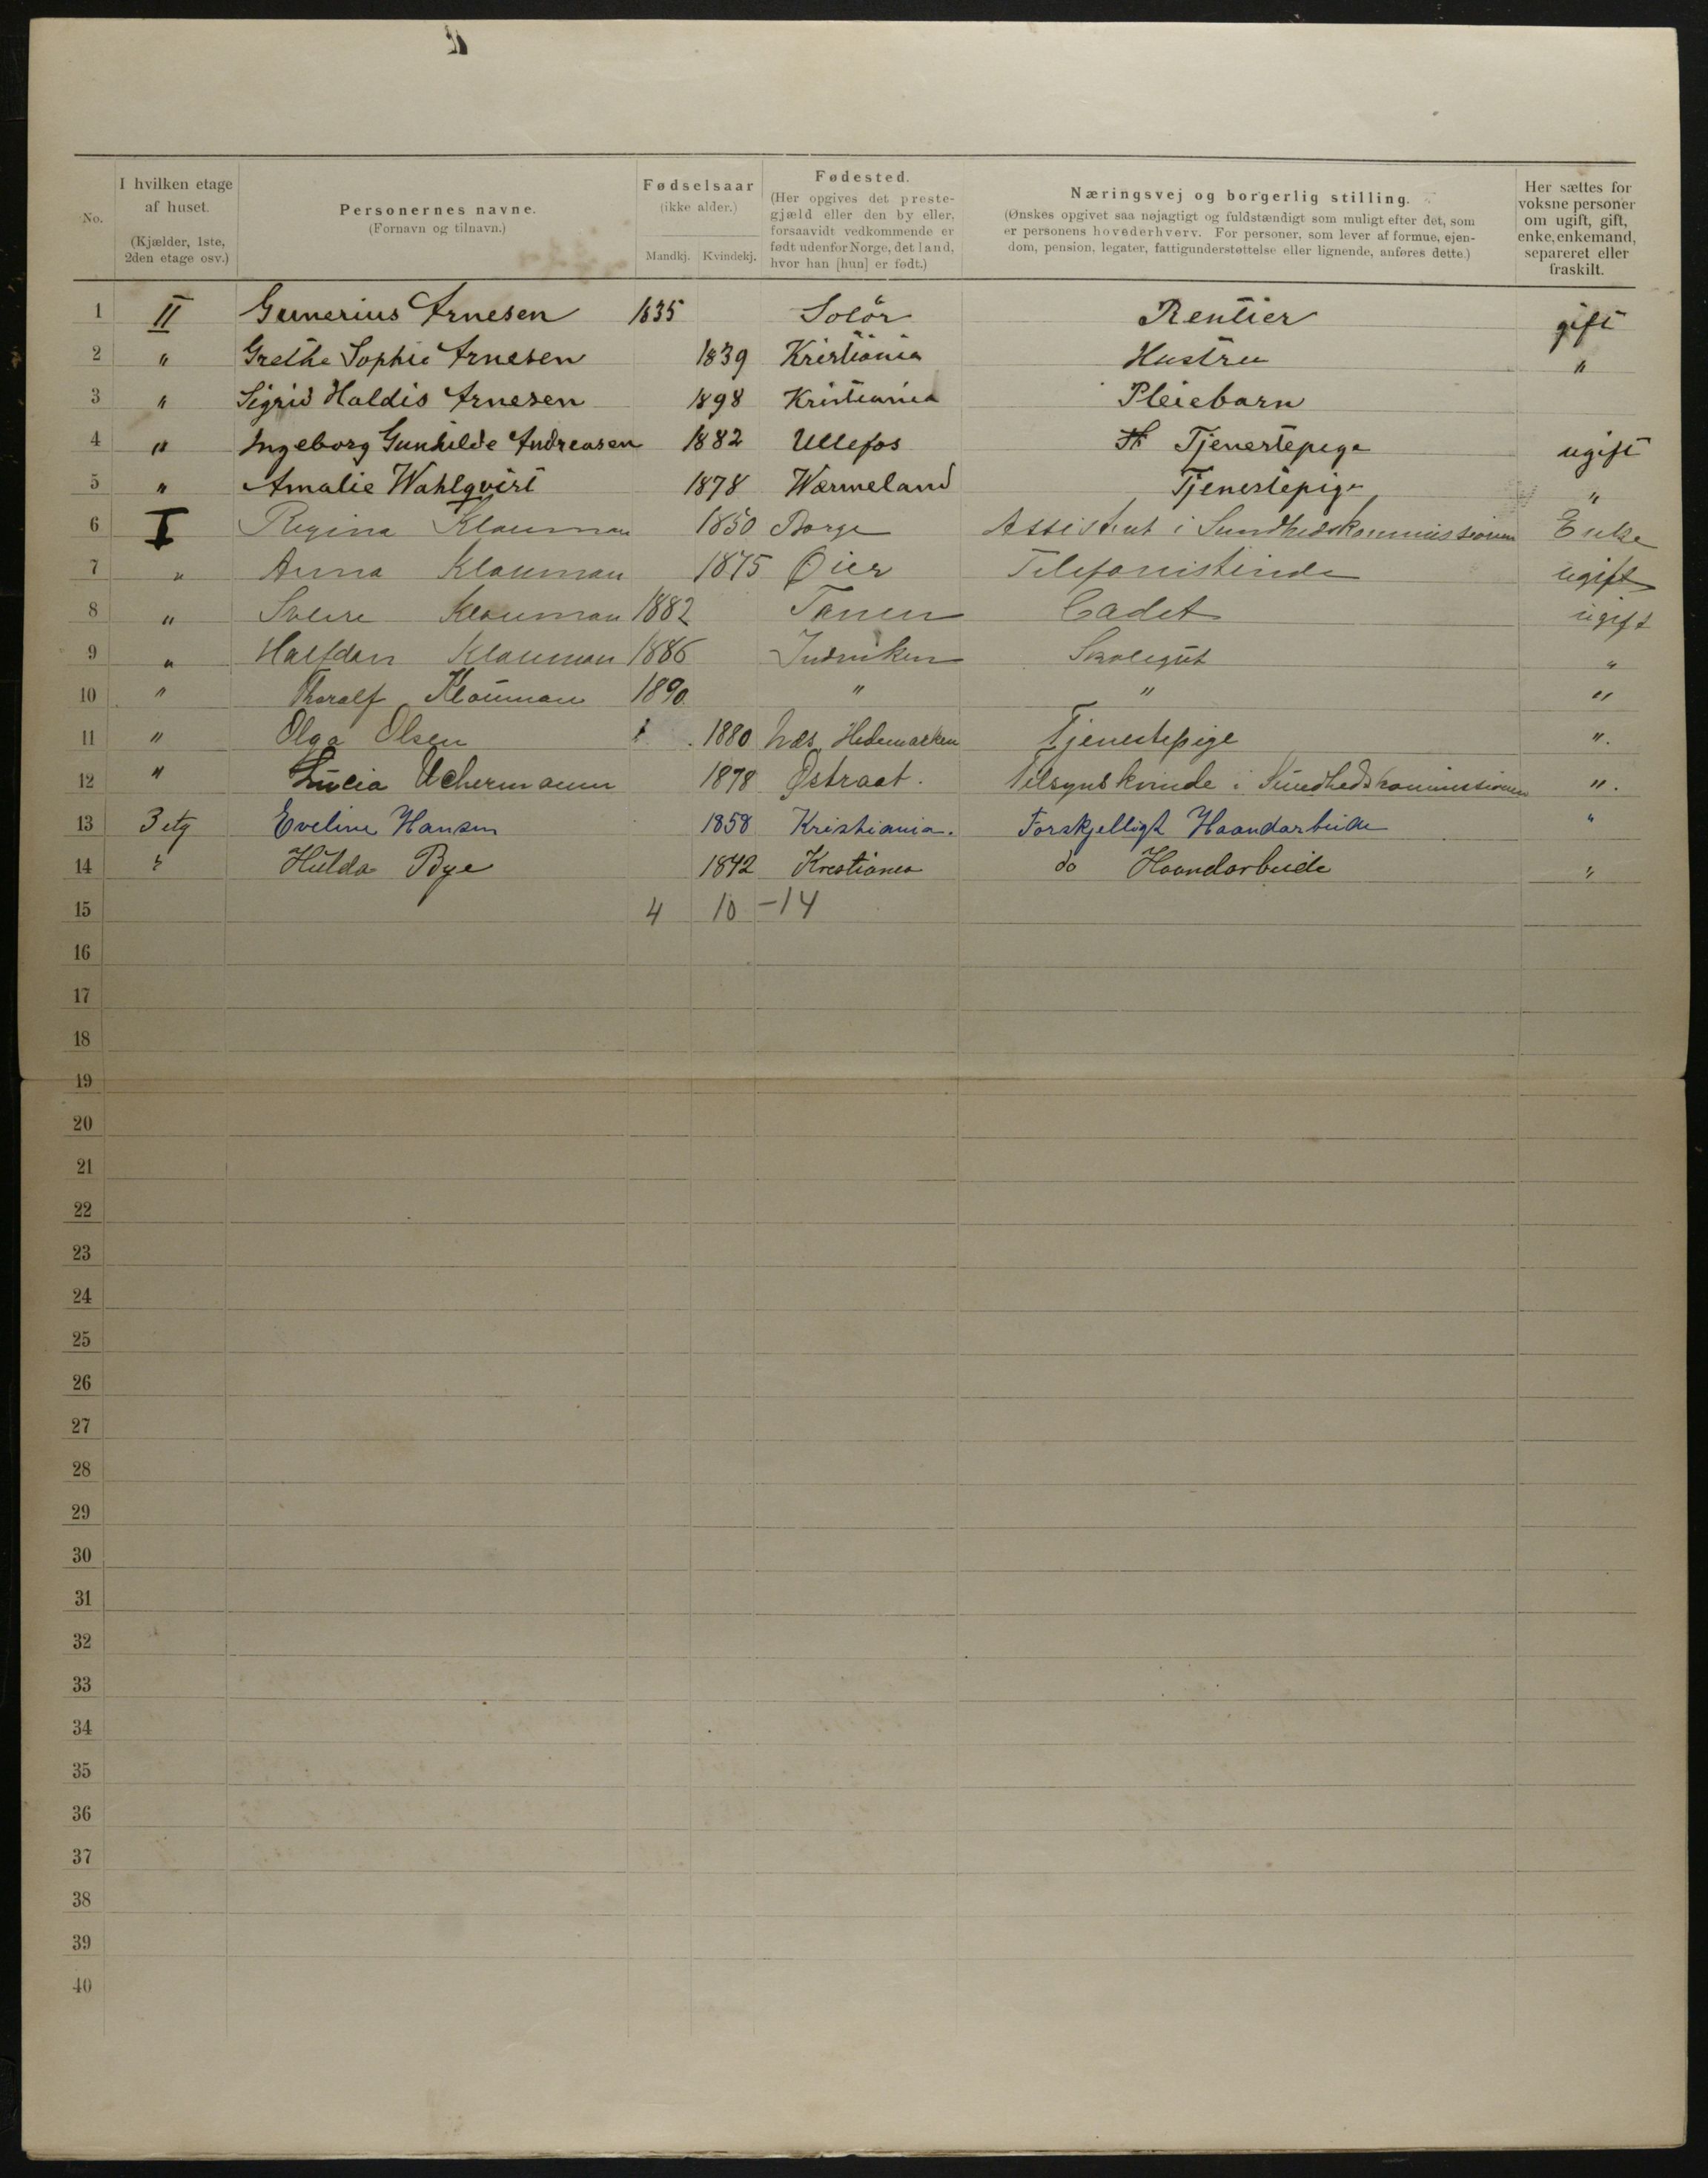 No. | I hvilken etage af huset. (Kjælder, 1ste, 2den etage osv.) | Personernes navne. (Fornavn og tilnavn.) | Fødselsaar (ikke alder.) Mandkj. Kvindekj. | Fødested. (Her opgives det prestegjæld eller den by eller, forsaavidt vedkommende er født udenfor Norge, det land, hvor han [hun] er født.) | Næringsvej og borgerlig stilling. (Ønskes opgivet saa nøjagtigt og fuldstændigt som muligt efter det, som er personens hovederhverv. For personer, som lever af formue, ejendom, pension, legater, fattigunderstøttelse eller lignende, anføres dette.) | Her sættes for voksne personer om ugift, gift, enke, enkemand, separeret eller fraskilt.
1 II Gunerius Arnesen 1835 Solör Rentier gift
2 " Grethe Sophie Arnesen 1839 Kristiania Hustru "
3 " Sigrid Haldis Arnesen 1898 Kristiania Pleiebarn
4 " Ingeborg Gunhilde Andreasen 1882 Ullefos Tjenestepige ugift
5 " Amalie Wahlqvist 1878 Wærmeland Tjenestepige "
6 I Regina Klouman 1850 Borge Assistent i Sundhedskommissionen Enke
7 " Anna Klouman 1875 Øier Telefonistinde ugift
8 " Klouman 1882 Tanen Cadet ugift
9 " Halfdan Klouman 1886 Indviken Skolegut "
10 " Thoralf Klouman 1890 " " "
11 " Olga Olsen 1880 Næs Hedemarken Tjenestepige ".
12 " Lucia Uchermann 1878 Østraat. Tilsynskvinde i Sundhedskommissionen ".
13 3 etg Eveline Hansen 1858 Kristiania. Forskjelligt Haandarbeide "
14 " Hulda Bye 1842 Krestiania do Haandarbeide "
15 4 10 -14
16
17
18
19
20
21
22
23
24
25
26
27
28
29
30
31
32
33
34
35
36
37
38
39
40